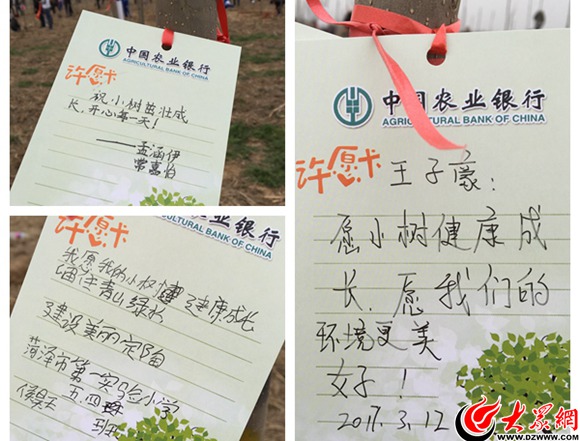 中国农业银行
AGRICULTURAL BANK OF CHINA
许愿卡
祝小树茁壮成
长,开心每一天!
——孟涵伊
常嘉怡
中国农业银行
AGRICULTURAL BANK OF CHINA
许愿卡
我愿我的小
健康成长
青山绿水
建设美丽定陶
菏泽市第一实验小学
五四班
中国农业银行
AGRICULTURAL BANK OF CHINA
许愿卡
王子豪:
愿小树健康成
长,愿我们的
环境更美
女子!
2017.3.12
大众網
WWW.DZWWW.COM